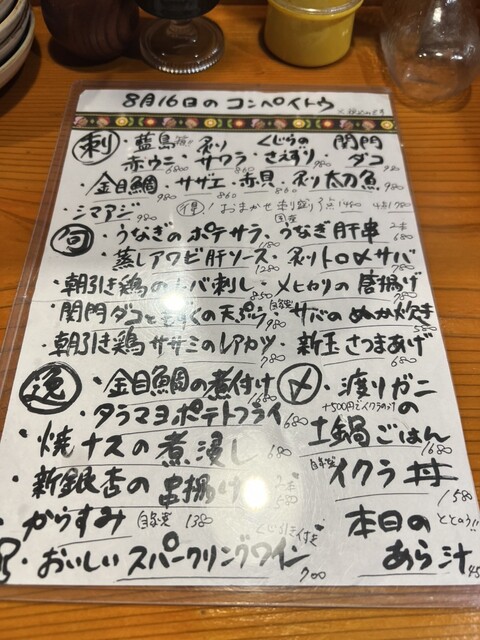 8月16日のコンペイトウ
刺 ・藍島 赤ウニ 6800 ・炙り サワラ 860 ・くじらの さえずり 980 ・関門 ダコ 980
・金目鯛 980 ・サザエ 860 ・赤貝 860 ・炙り太刀魚 980
・シマアジ 980 得! おまかせ刺盛り3点1480 4点1980
旬 ・うなぎのポテサラ 1180 ・国産 うなぎ肝串 2本 680
・蒸しアワビ肝ソース 1280 ・炙りトロ〆サバ 980
・朝引き鶏の 刺し 850 ・メヒカリの唐揚げ 780
・関門ダコと の天ぷら 980 ・自家製 サバのぬか炊き 580
・朝引き鶏ササミのレアカツ 980 ・新玉さつまあげ 680
逸 ・金目鯛の煮付け 1680
・タラマヨポテトフライ 680
・焼ナスの煮浸し 680
・新銀杏の串揚げ 2本 580
・からすみ 自家製 1380
・おいしいスパークリングワイン くじ引き付き 700
〆 ・渡りガニの
+500円でイクラのけ
土鍋ごはん 1680
自家製 イクラ丼 1580
本日の ととのう!!
あら汁